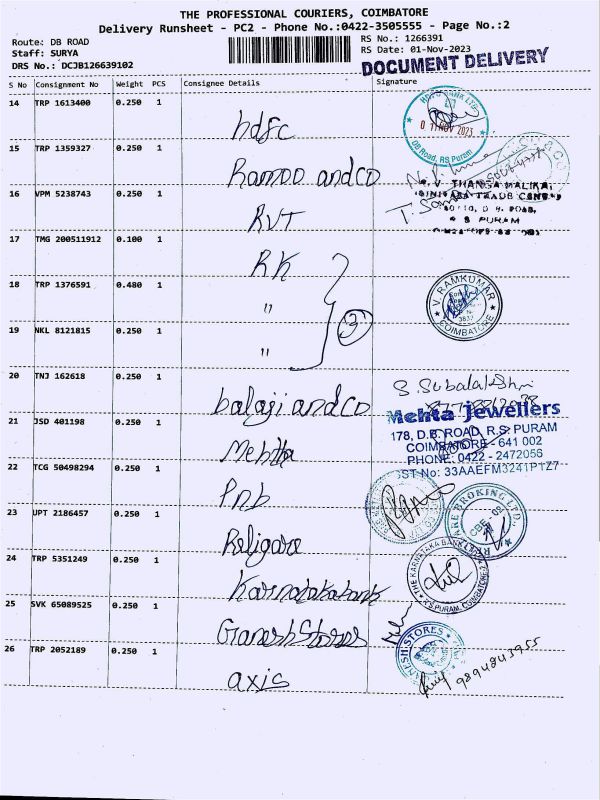 THE PROFESSIONAL COURIERS, COIMBATORE
Delivery Runsheet - PC2 - Phone No.:0422-3505555 - Page No.:2
Route: DB ROAD
Staff: SURYA
DRS No.: DCJB126639102
RS No.: 1266391
RS Date: 01-Nov-2023
DOCUMENT DELIVERY
S No Consignment No Weight PCS Consignee Details Signature
14 TRP 1613400 0.250 1
hdfc
01 NOV 2023
DB Road, R.S. Puram
15 TRP 1359327 0.250 1
Ramoo and co
16 VPM 5238743 0.250 1
RVT
R S PURAM
17 TMG 200511912 0.100 1
RK
18 TRP 1376591 0.480 1
"
3
V. RAMKUMAR
COIMBATORE
19 NKL 8121815 0.250 1
"
20 TNJ 162618 0.250 1
balaji and co
21 JSD 401198 0.250 1
Mehtha
Mehta Jewellers
178, D.B. ROAD, R.S. PURAM
COIMBATORE - 641 002
PHONE: 0422 - 2472056
GST No: 33AAEFM3241P1Z7
22 TCG 50498294 0.250 1
Pnb
23 UPT 2186457 0.250 1
Religare
RELIGARE BROKING LTD.
24 TRP 5351249 0.250 1
Karnatakabank
THE KARNATAKA BANK
R.S PURAM, COIMBATORE-2
25 SVK 65089525 0.250 1
Ganesh Stores
GANESH STORES
26 TRP 2052189 0.250 1
axis
9894843955